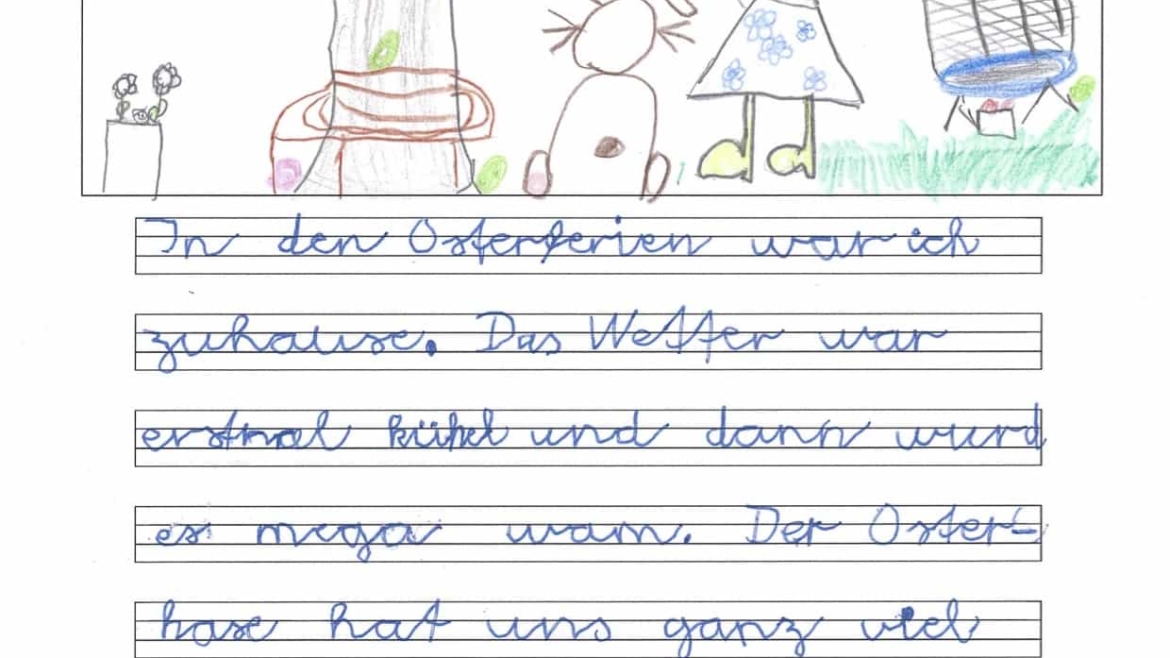 In den Osterferien war ich
zuhause. Das Wetter war
erstmal kühel und dann wurd
es mega wam. Der Oster-
hase hat uns ganz viel